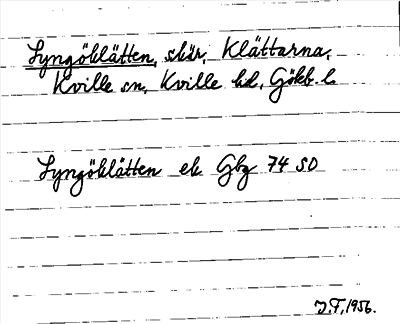 Lyngöklätten, skär, Klättarna,
Kville sn, Kville hd, Götb. l.
Lyngöklätten ek Gbg 74 SO
J.F. 1956.